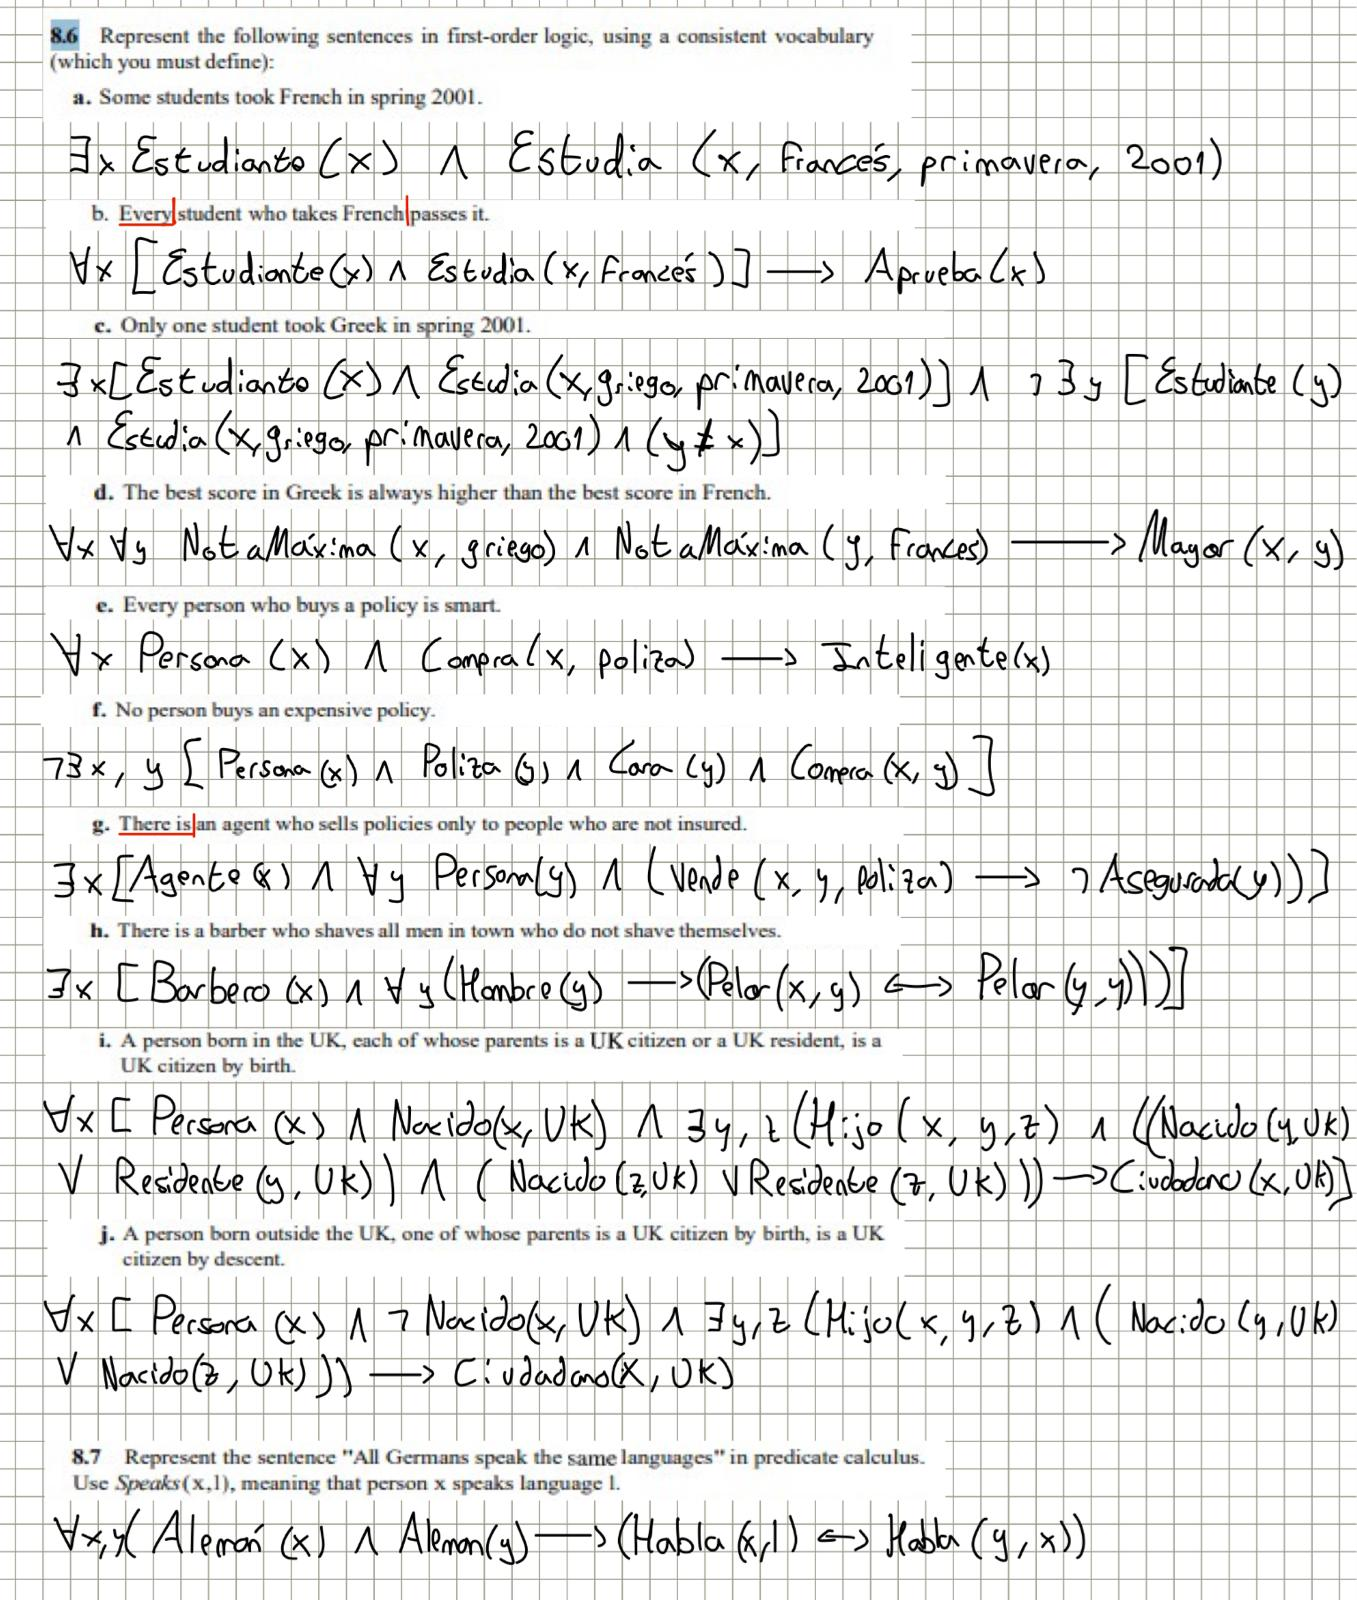 8.6 Represent the following sentences in first-order logic, using a consistent vocabulary
(which you must define):
a. Some students took French in spring 2001.
∃x Estudiante (x) ∧ Estudia (x, francés, primavera, 2001)
b. Every student who takes French passes it.
∀x [Estudiante(x) ∧ Estudia (x, francés)] → Aprueba(x)
c. Only one student took Greek in spring 2001.
∃x[Estudiante (x) ∧ Estudia (x, griego, primavera, 2001)] ∧ ¬∃y [Estudiante (y)
∧ Estudia (x, griego, primavera, 2001) ∧ (y ≠ x)]
d. The best score in Greek is always higher than the best score in French.
∀x ∀y NotaMáxima (x, griego) ∧ NotaMáxima (y, frances) → Mayor (x, y)
e. Every person who buys a policy is smart.
∀x Persona (x) ∧ Compra(x, poliza) → Inteligente(x)
f. No person buys an expensive policy.
¬∃x, y [Persona (x) ∧ Poliza (y) ∧ Cara (y) ∧ Compra (x, y)]
g. There is an agent who sells policies only to people who are not insured.
∃x [Agente (x) ∧ ∀y Persona(y) ∧ (Vende (x, y, poliza) → ¬Asegurada(y))]
h. There is a barber who shaves all men in town who do not shave themselves.
∃x [Barbero (x) ∧ ∀y (Hombre (y) → (Pelar (x, y) ↔ Pelar (y, y)))]
i. A person born in the UK, each of whose parents is a UK citizen or a UK resident, is a
UK citizen by birth.
∀x [Persona (x) ∧ Nacido(x, UK) ∧ ∃y, z (Hijo (x, y, z) ∧ ((Nacido (y, UK)
∨ Residente (y, UK)) ∧ (Nacido (z, UK) ∨ Residente (z, UK))) → Ciudadano (x, UK)]
j. A person born outside the UK, one of whose parents is a UK citizen by birth, is a UK
citizen by descent.
∀x [Persona (x) ∧ ¬ Nacido(x, UK) ∧ ∃y, z (Hijo(x, y, z) ∧ (Nacido (y, UK)
∨ Nacido(z, UK))) → Ciudadano(x, UK)
8.7 Represent the sentence "All Germans speak the same languages" in predicate calculus.
Use Speaks(x,l), meaning that person x speaks language l.
∀x,y( Alemán (x) ∧ Aleman(y) → (Habla (x, l) ↔ Habla (y, x))